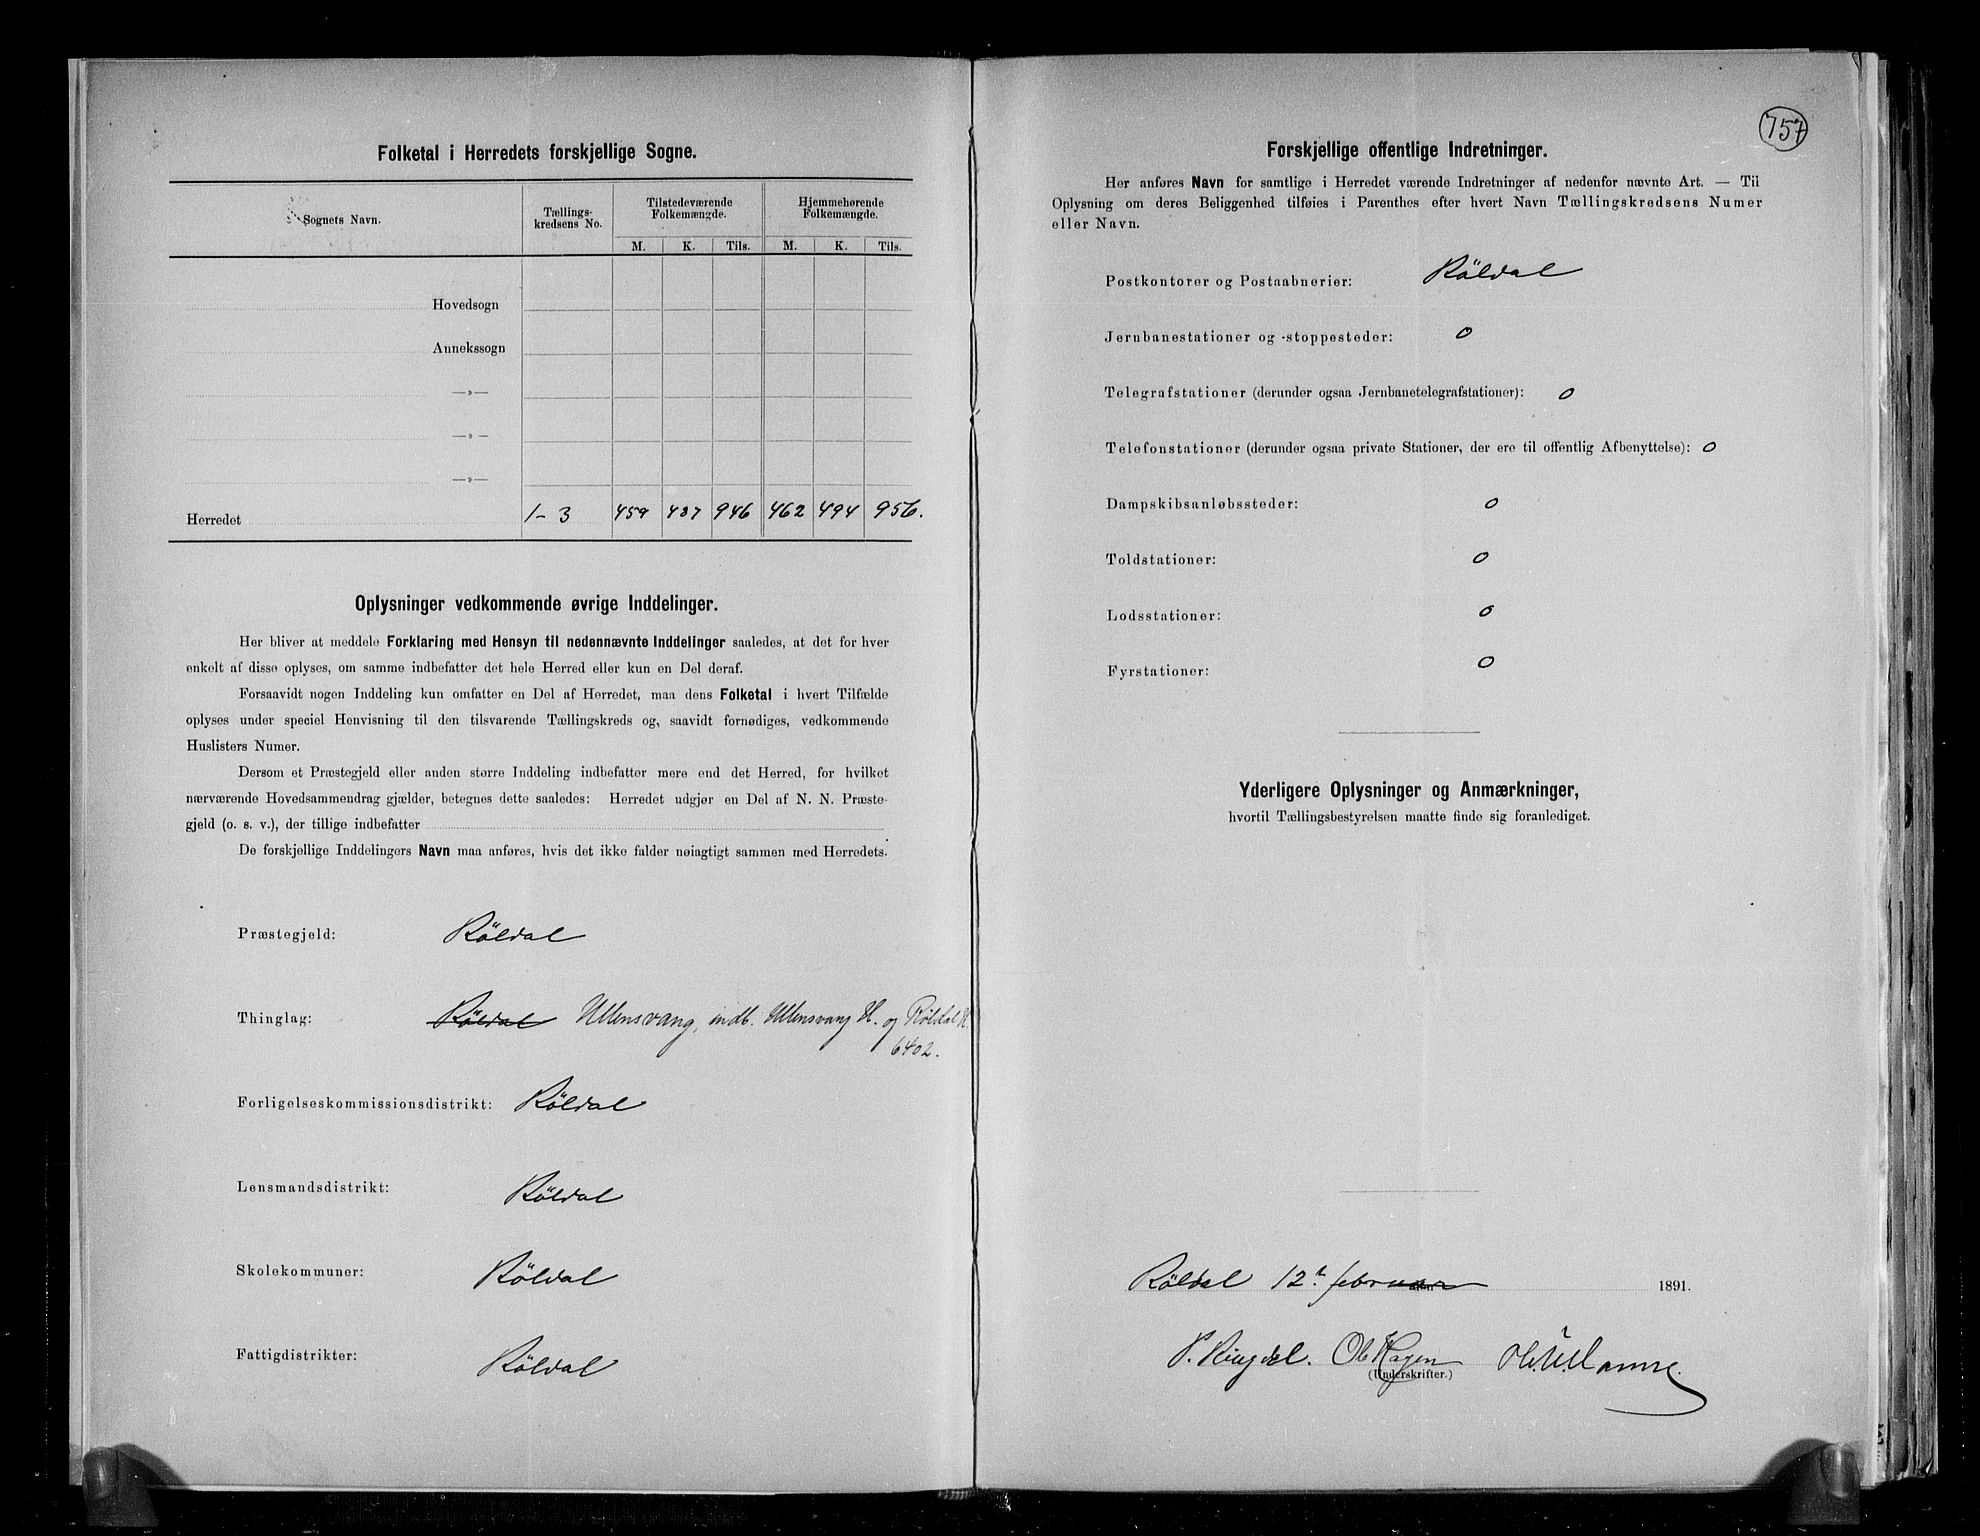 Folketal i Herredets forskjellige Sogne.
Sognets Navn. Tællings-kredsens No. Tilstedeværende Folkemængde. Hjemmehørende Folkemængde.
M. K. Tils. M. K. Tils.
Hovedsogn
Annekssogn
—»—
—»—
—»—
Herredet 1-3 459 487 946 462 494 956.
Oplysninger vedkommende øvrige Inddelinger.
Her bliver at meddele Forklaring med Hensyn til nedennævnte Inddelinger saaledes, at det for hver
enkelt af disse oplyses, om samme indbefatter det hele Herred eller kun en Del deraf.
Forsaavidt nogen Inddeling kun omfatter en Del af Herredet, maa dens Folketal i hvert Tilfælde
oplyses under speciel Henvisning til den tilsvarende Tællingskreds og, saavidt fornødiges, vedkommende
Huslisters Numer.
Dersom et Præstegjeld eller anden større Inddeling indbefatter mere end det Herred, for hvilket
nærværende Hovedsammendrag gjælder, betegnes dette saaledes: Herredet udgjør en Del af N. N. Præste-
gjeld (o. s. v.), der tillige indbefatter
De forskjellige Inddelingers Navn maa anføres, hvis det ikke falder nøiagtigt sammen med Herredets.
Præstegjeld: Röldal
Thinglag: Röldal Ullensvang, indb. Ullensvang H. og Röldal H.
6402.
Forligelseskommissionsdistrikt: Röldal
Lensmandsdistrikt: Röldal
Skolekommuner: Röldal
Fattigdistrikter: Röldal
757
Forskjellige offentlige Indretninger.
Her anføres Navn for samtlige i Herredet værende Indretninger af nedenfor nævnte Art. — Til
Oplysning om deres Beliggenhed tilføies i Parenthes efter hvert Navn Tællingskredsens Numer
eller Navn.
Postkontorer og Postaabnerier: Röldal
Jernbanestationer og -stoppesteder: 0
Telegrafstationer (derunder ogsaa Jernbanetelegrafstationer): 0
Telefonstationer (derunder ogsaa private Stationer, der ere til offentlig Afbenyttelse): 0
Dampskibsanløbssteder: 0
Toldstationer: 0
Lodsstationer: 0
Fyrstationer: 0
Yderligere Oplysninger og Anmærkninger,
hvortil Tællingsbestyrelsen maatte finde sig foranlediget.
Röldal 12te februar den 1891.
P. Ringdal. Ol Hagen
(Underskrifter.)